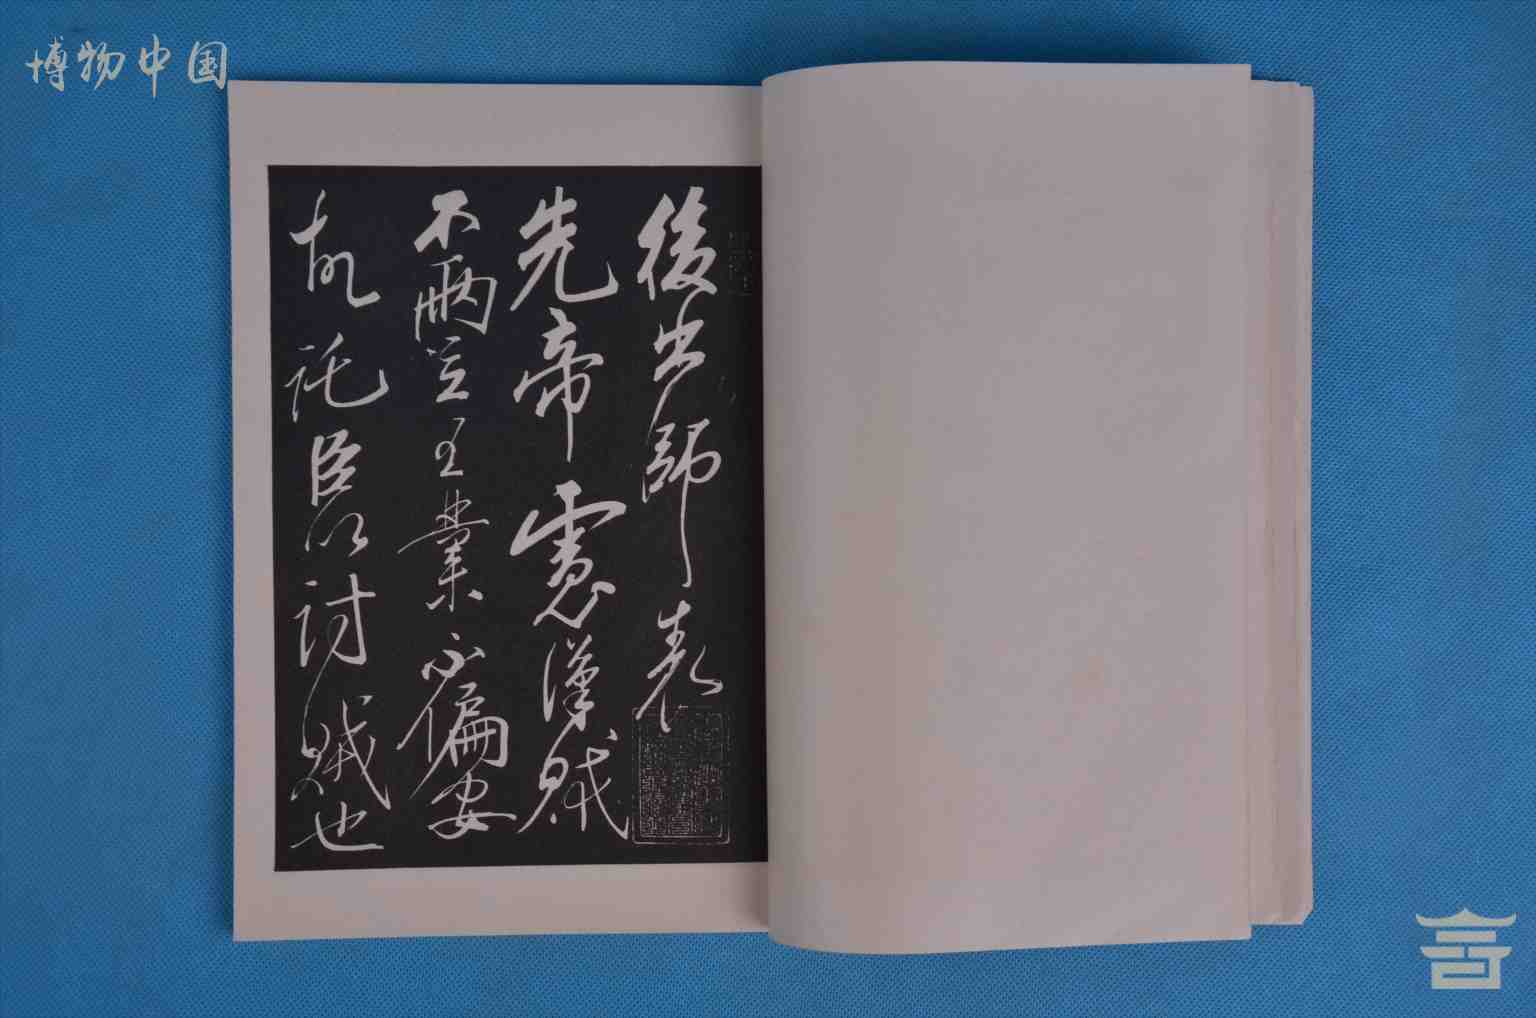 博物中国
後出師表
先帝慮漢賊
不兩立王業不偏安
故託臣以討賊也